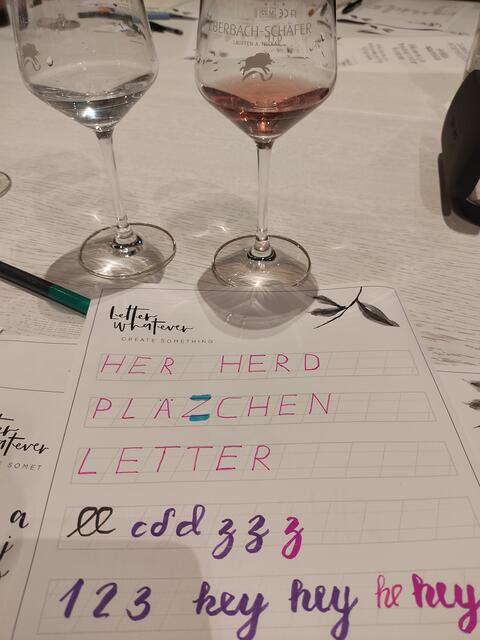 EBERBACH-SCHÄFER
LAUFFEN A. NECKAR
Letter
whatever
CREATE SOMETHING
HER HERD
PLÄZCHEN
LETTER
ll cdd z z z
1 2 3 hey hey he hey
tever
SOMET
a
j